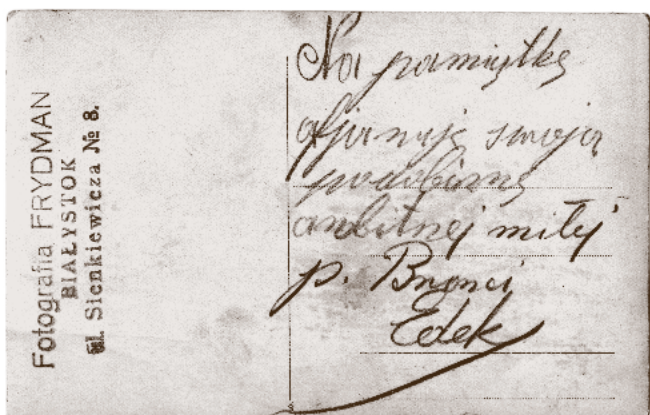 Fotografia FRYDMAN
BIAŁYSTOK
ul. Sienkiewicza № 8.
Na pamiątkę
ofjaruję swoją
podobiznę
ambitnej miłej
p. Bronci
Edek